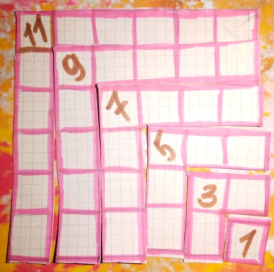 11
9
7
5
3
1